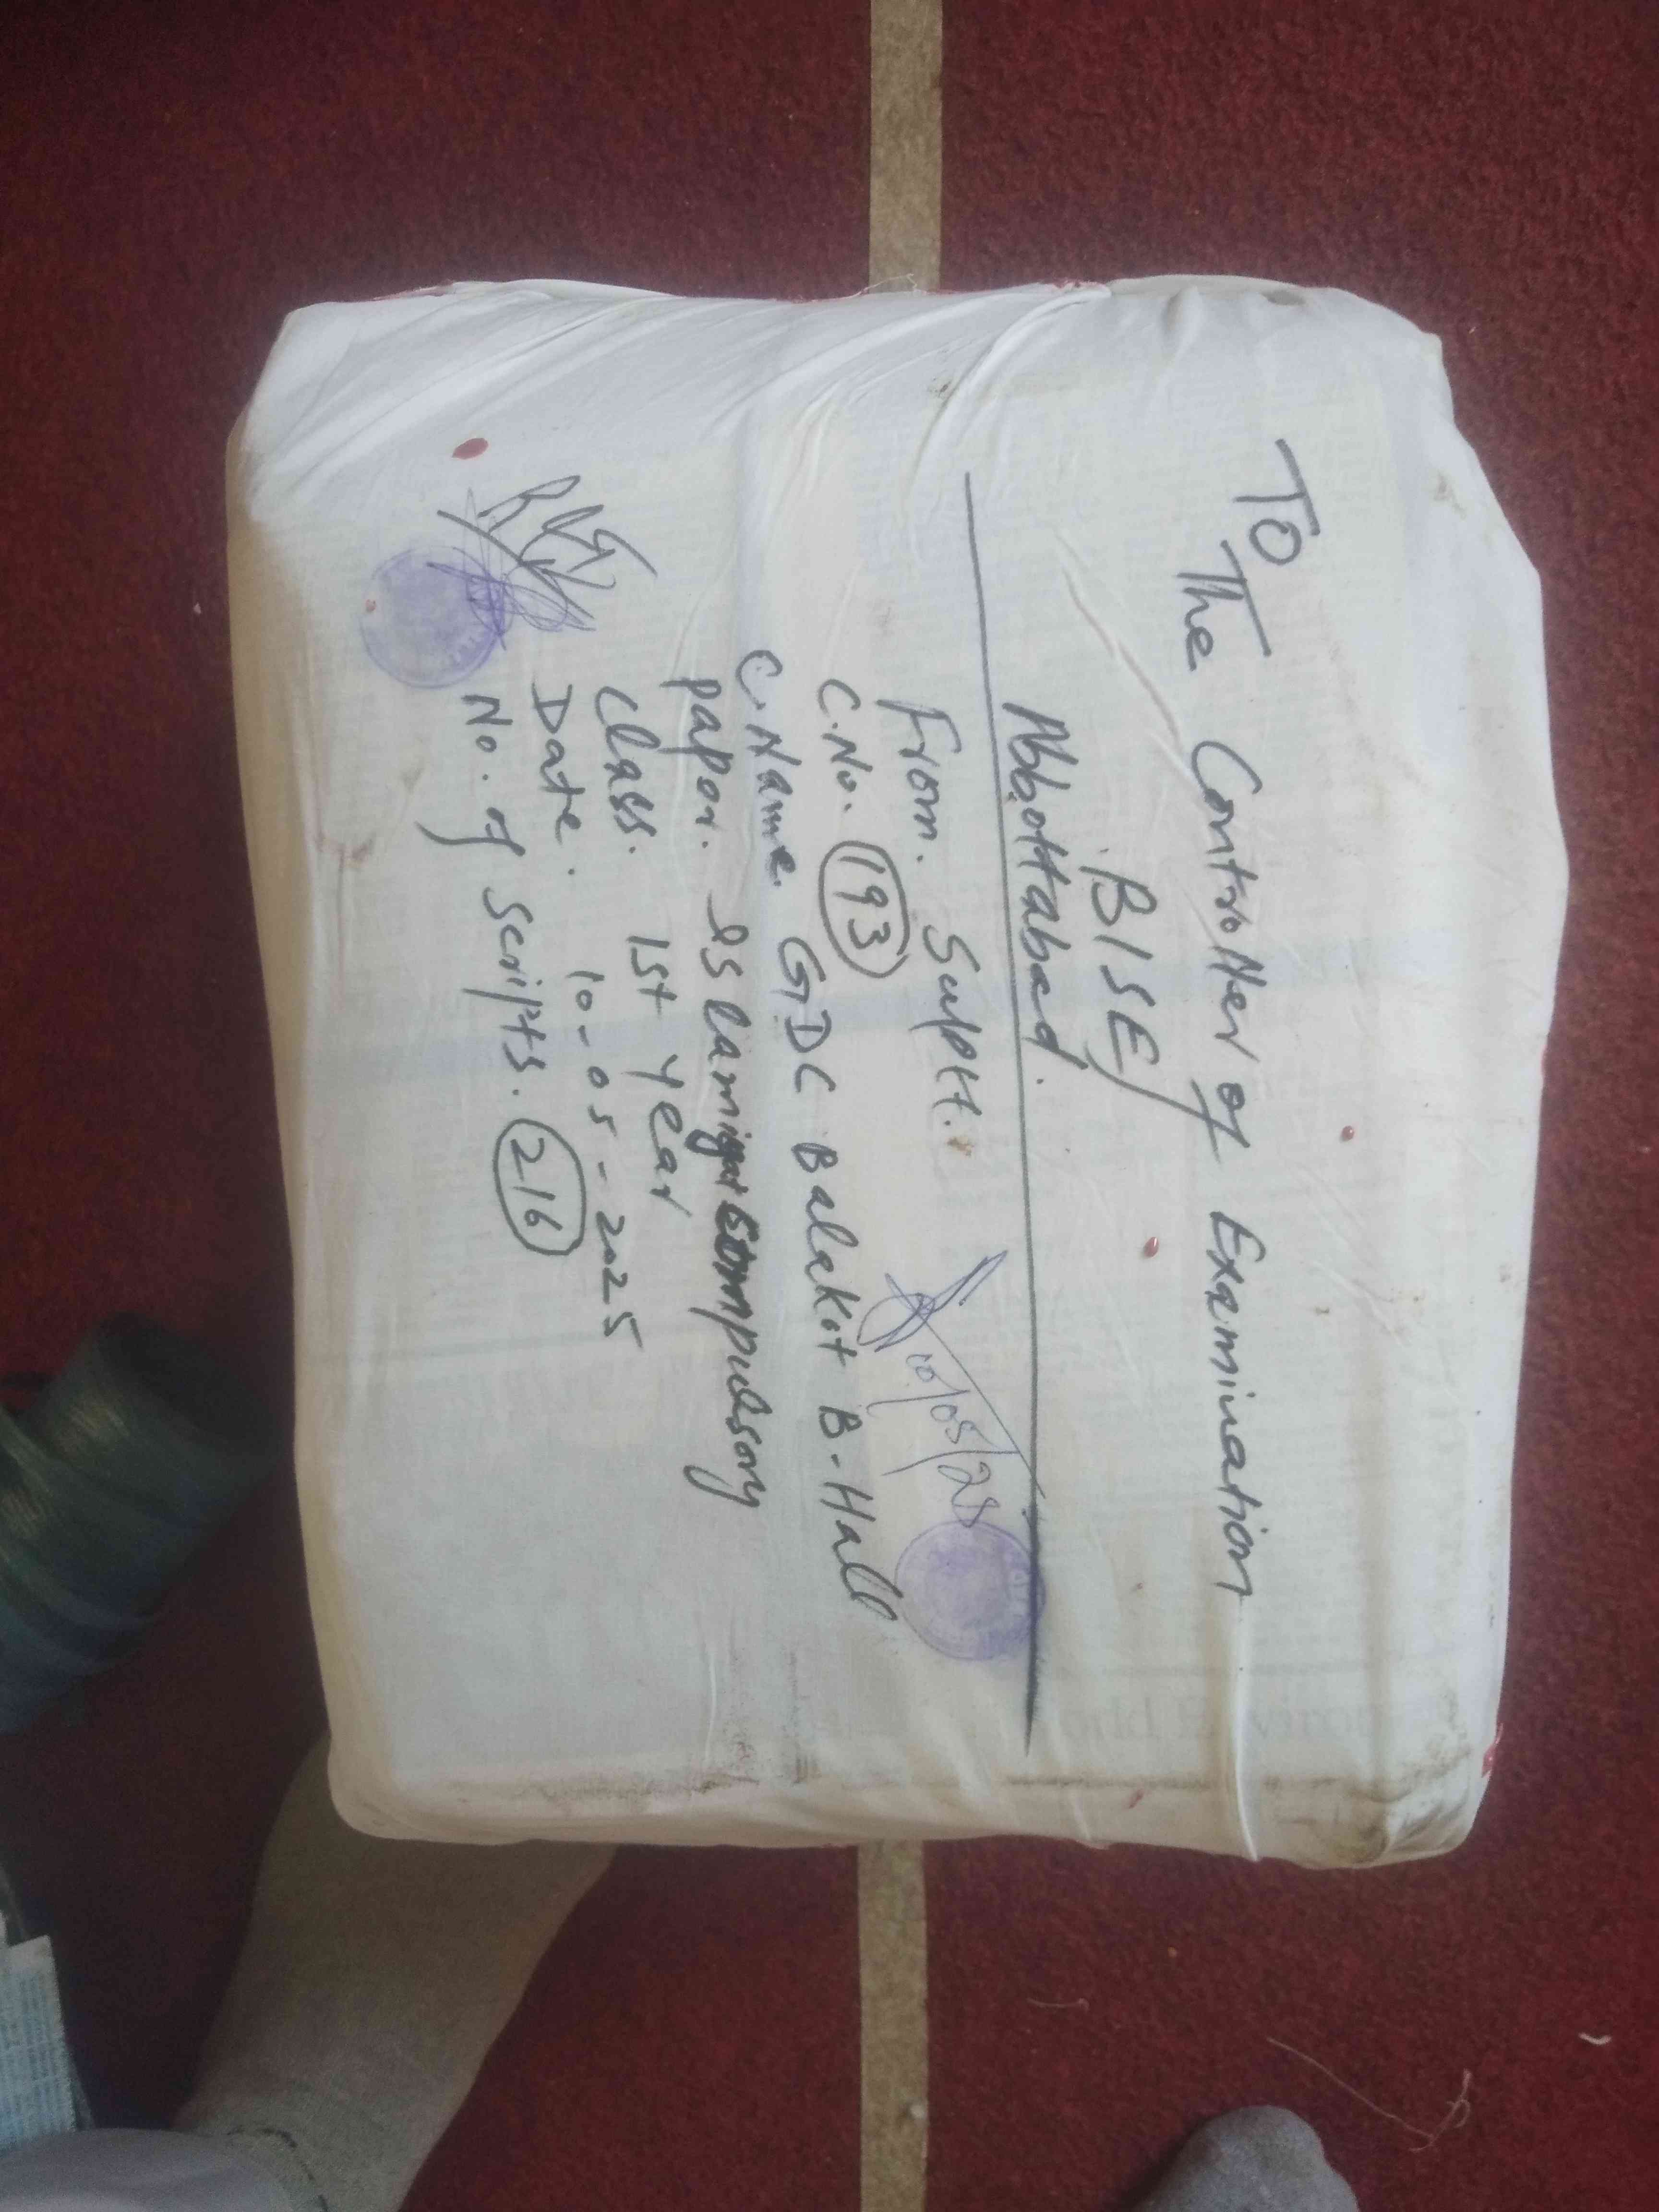 To
The Controller of Examination
BISE
Abbottabad.
From. Supdt.
10/05/25
C.No. 193
C.Name. GDC Balakot B-Hall
Paper. Islamiyat Compulsory
Class. 1st year
Date. 10-05-2025
No. of scripts. 216